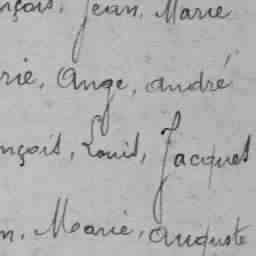 nçois, Jean, Marie
rie, Ange, André
nçois, Louis, Jacques
n, Marie, Auguste